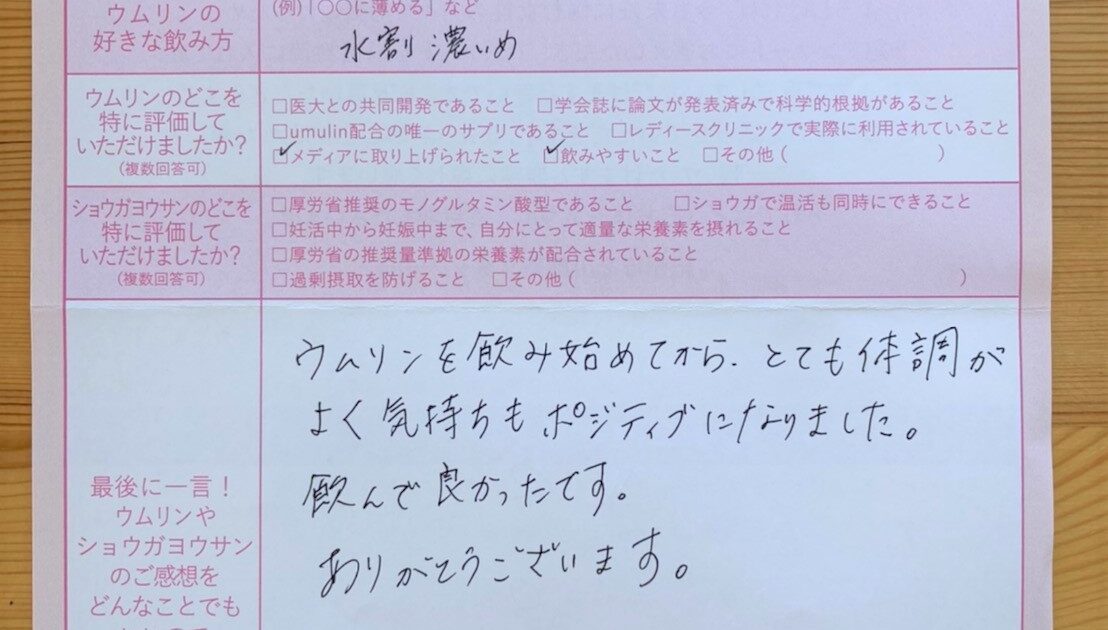 ウムリンの
好きな飲み方
(例)「〇〇に薄める」など
水割 濃いめ
ウムリンのどこを
特に評価して
いただけましたか?
(複数回答可)
□医大との共同開発であること □学会誌に論文が発表済みで科学的根拠があること
□umulin配合の唯一のサプリであること □レディースクリニックで実際に利用されていること
☑メディアに取り上げられたこと ☑飲みやすいこと □その他( )
ショウガヨウサンのどこを
特に評価して
いただけましたか?
(複数回答可)
□厚労省推奨のモノグルタミン酸型であること □ショウガで温活も同時にできること
□妊活中から妊娠中まで、自分にとって適量な栄養素を摂れること
□厚労省の推奨量準拠の栄養素が配合されていること
□過剰摂取を防げること □その他( )
最後に一言!
ウムリンや
ショウガヨウサン
のご感想を
どんなことでも
ウムリンを飲み始めてから、とても体調が
よく気持ちもポジティブになりました。
飲んで良かったです。
ありがとうございます。